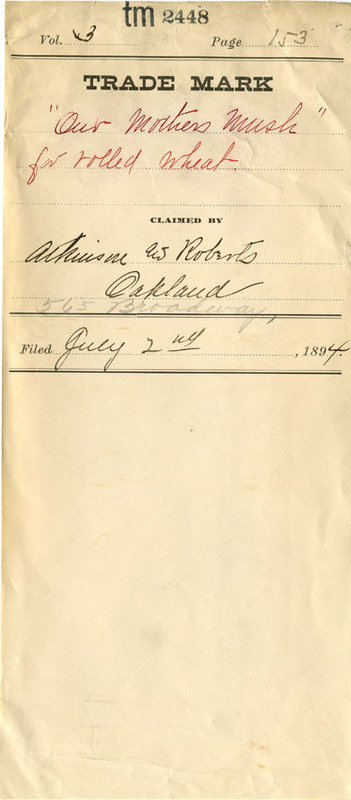 tm 2448
Vol. 3 Page 153
TRADE MARK
"Our Mothers Mush"
for rolled wheat.
CLAIMED BY
Atkinson & Roberts
Oakland
565 Broadway,
Filed July 2nd, 1894.